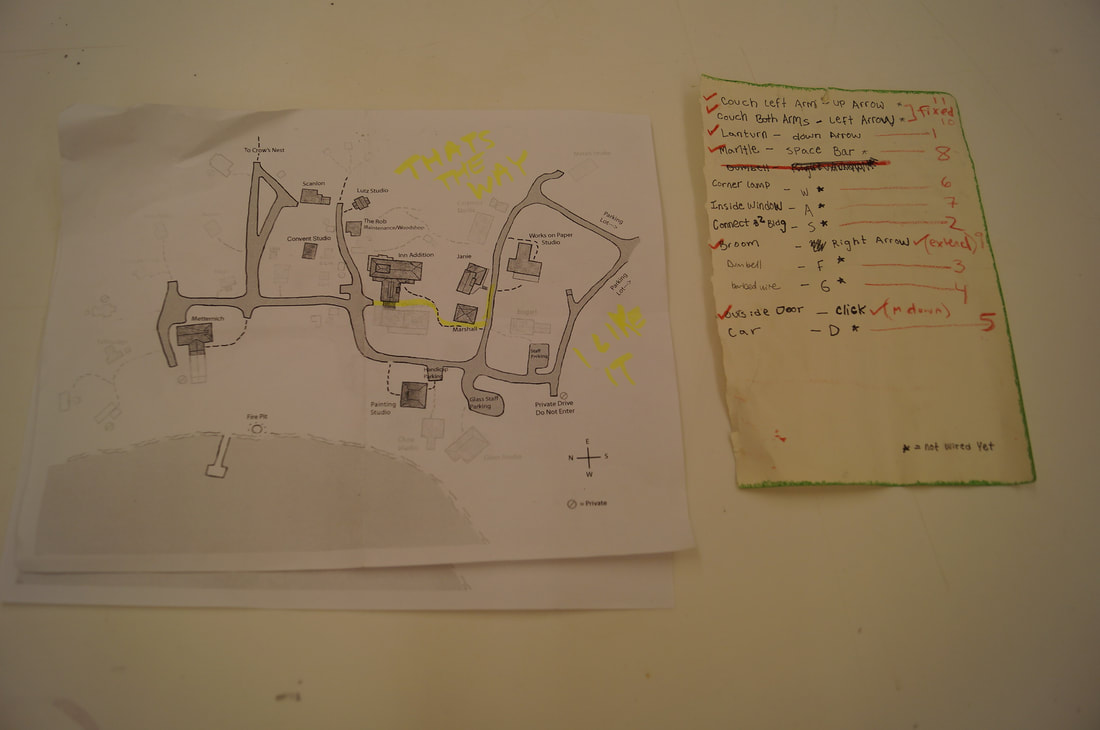 To Crow's Nest
Scanlon
Lutz Studio
The Rob
Maintenance/Woodshop
Convent Studio
Inn Addition
Janie
Works on Paper
Studio
Parking
Lot-->
Parking
Lot-->
Metternich
Marshall
Staff
Parking
Handicap
Parking
Painting
Studio
Glass Staff
Parking
Private Drive
Do Not Enter
Fire Pit
Glass Studio
E
N S
W
= Private
THATS
THE
WAY
I LIKE
IT
Couch Left Arm - up Arrow * ] fixed 11
Couch Both Arms - Left Arrow * 10
Lanturn - down Arrow 1
Mantle - Space Bar * 8
Dumbell
Corner lamp - W * 6
Inside Window - A * 7
Connect 82 Bldg - S * 2
Broom - Right Arrow (extend)?
Dumbell - F * 3
barbed wire - G * 4
Outside Door - Click (m down)
Car - D * 5
* = not wired yet